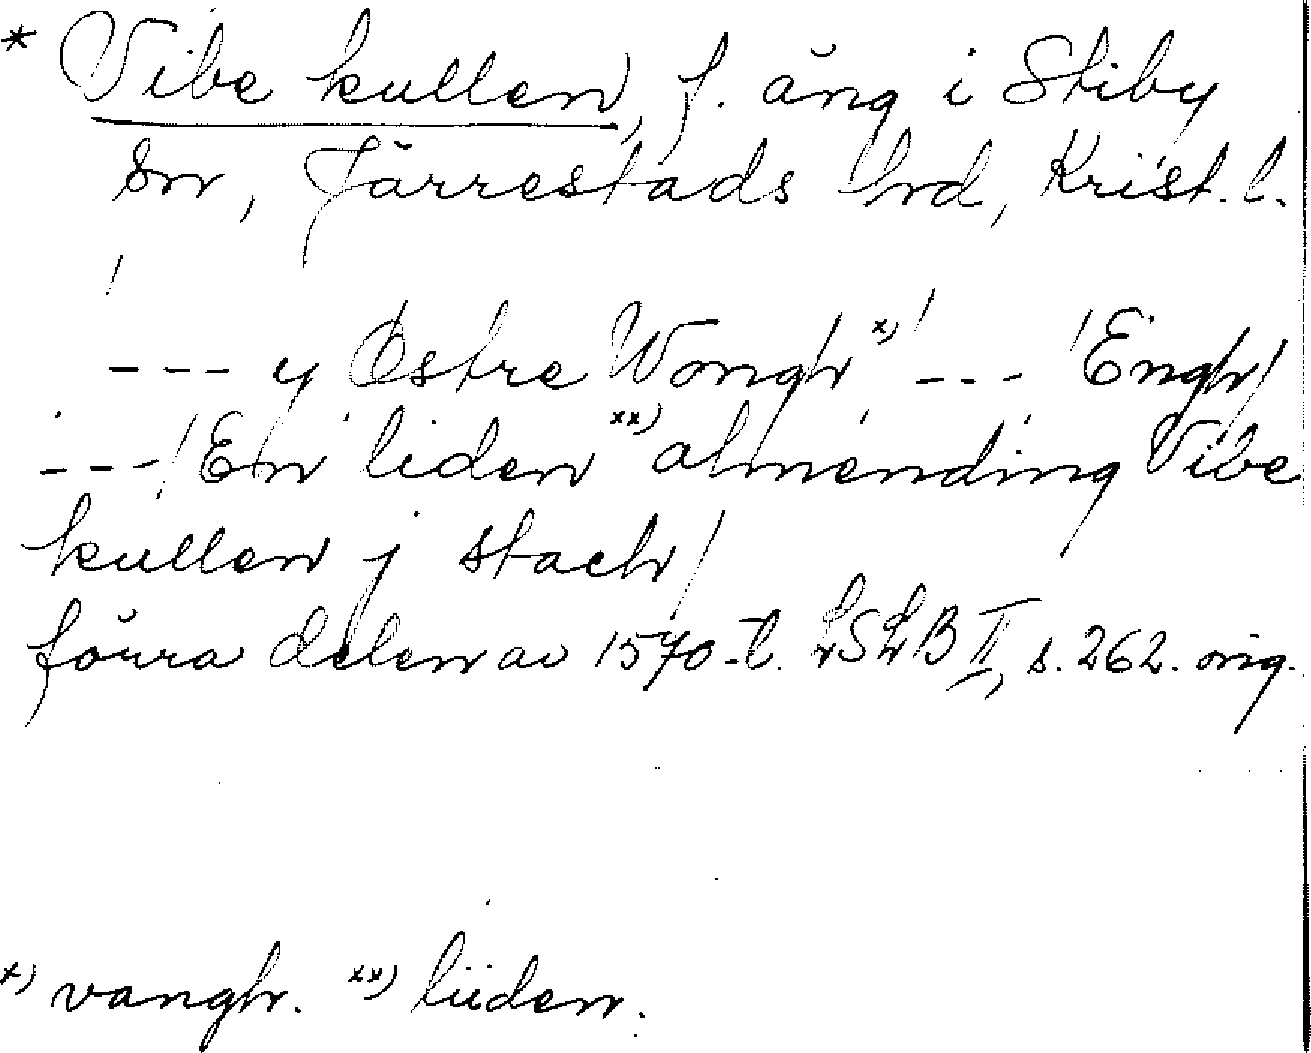 * Vibe kullen, f. äng i Stiby
sn, Järrestads hrd, Krist. l.
--- y Østre Wongh x) / --- / Engh /
--- / En liden xx) almending Vibe
kullen j stach /
förra delen av 1570-t. LSLB II, s. 262. orig.
x) vangh. xx) liiden.